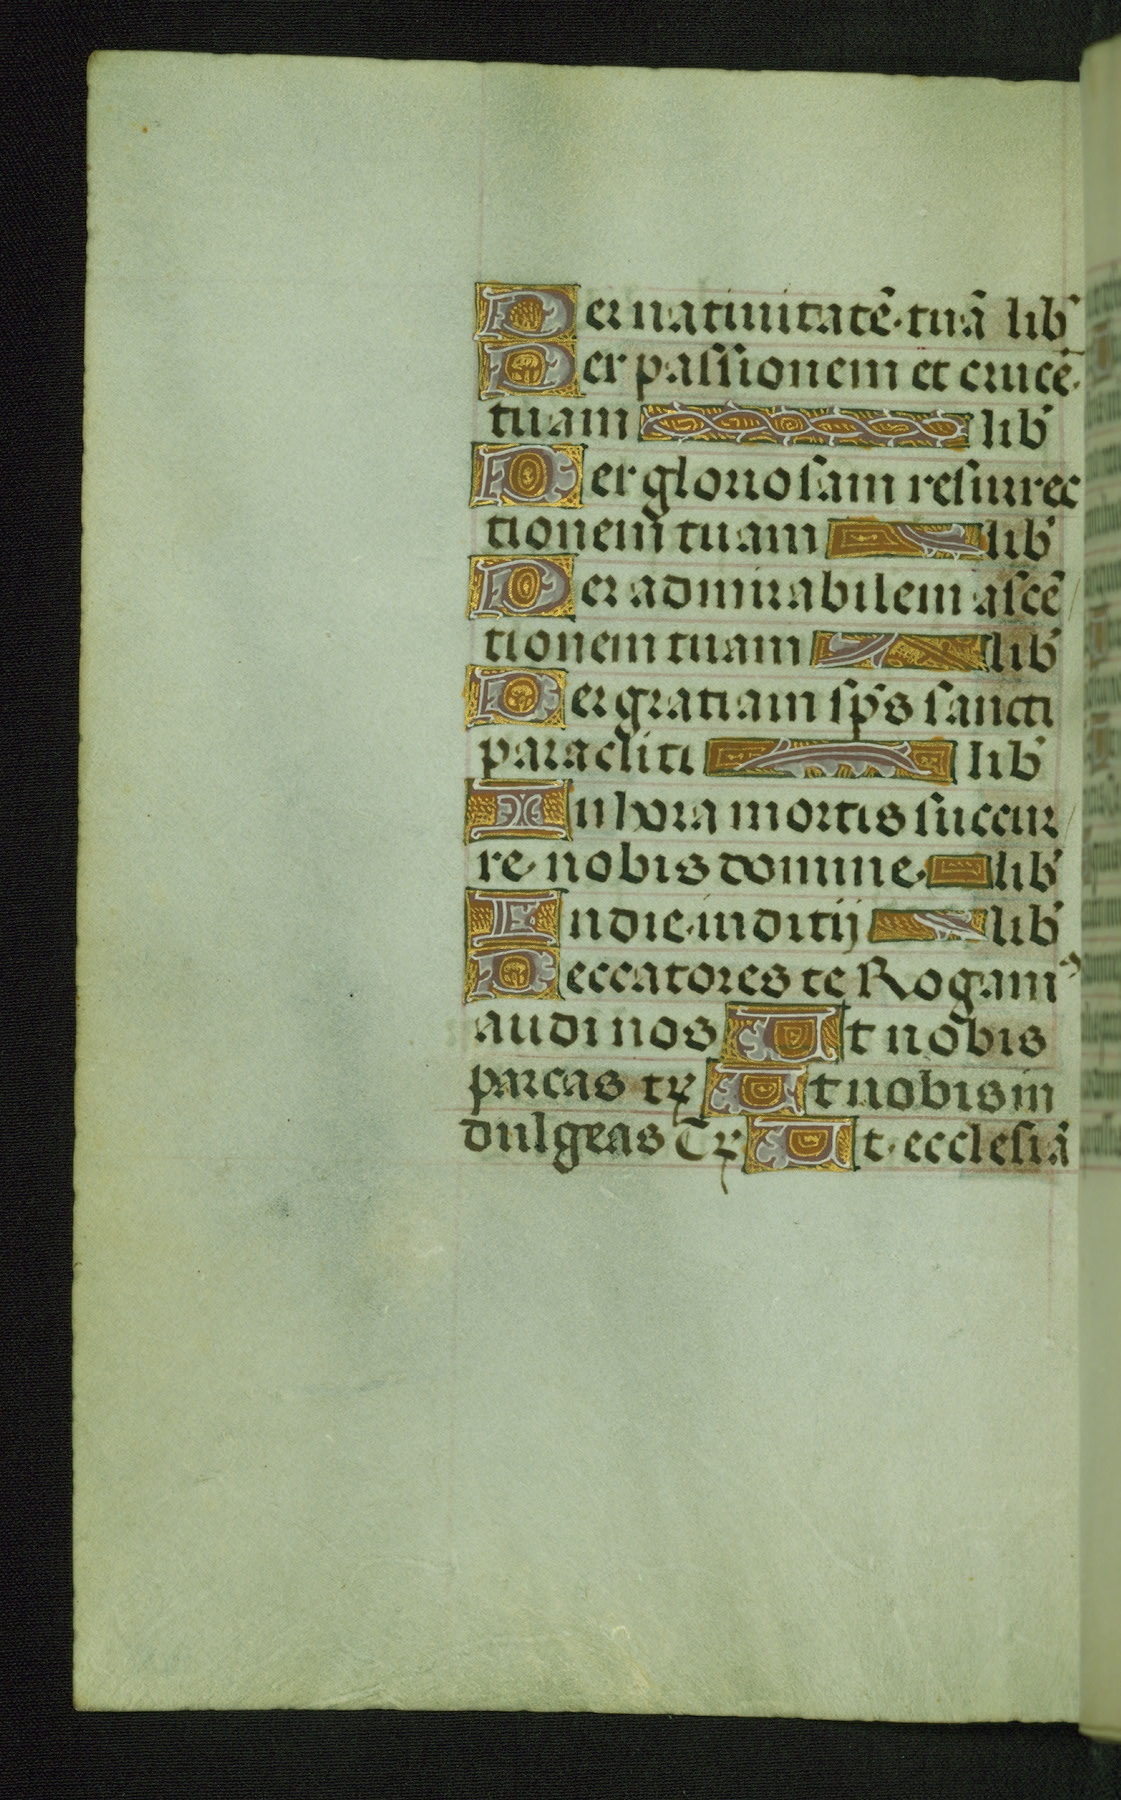 Per natiuitatē·tuā lib̄
Per passionem et crucē·
tuam lib̄
Per gloriosam resurrec
tionem tuam lib̄
Per admirabilem ascē
tionem tuam lib̄
Per gratiam sp̄s sancti
paracliti lib̄
In hora mortis succur
re·nobis domine· lib̄
In die·iuditij lib̄
Peccatores te Rogam⁹
audi nos Ut nobis
parcas tꝝ Ut nobis in
dulgeas Tꝝ Ut·ecclesiā